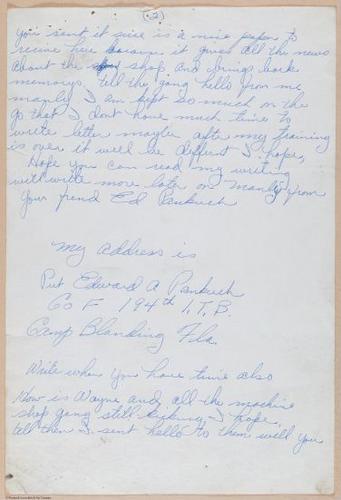 you sent it sure is a nice paper to
recive here because it gives all the news
about the shop and brings back
memorys. tell the gang hello from me
manly I am kept so much on the
go that I dont have much time to
write letter maybe after my training
is over it will be diffrent I hope,
Hope you can read my writing
will write more later on Manly from
Your friend Ed Pankuch
My address is
Pvt Edward A Pankuch
Co F 194th I.T.B.
Camp Blanding Fla.
Write when you have time also
How is Wayne and all the machine
shop gang still kicking I hope,
till then I sent hello to them will you